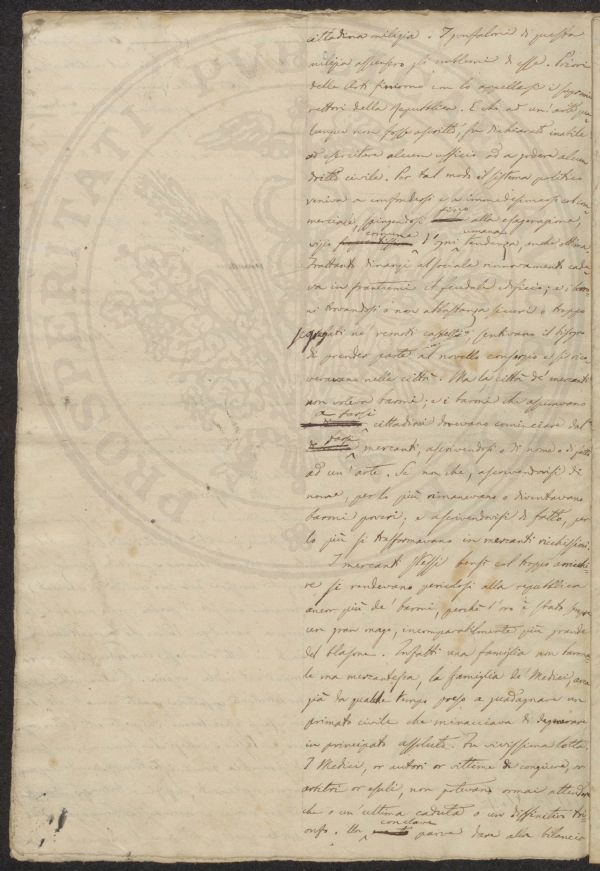 cittadina milizia. I gonfalonieri di questa
milizia assunsero gli emblemi di essa. Priori
delle Arti furono con lo appellarsi i supremi
rettori della Repubblica. E chi ad un'arte qua-
lunque non fosse ascritto, fu dichiarato inabile
ad esercitare alcun ufficio od a godere alcun
dritto civile. Per tal modo il sistema politico
veniva a confondersi e a immedesimarsi col com-
merciale, spingendosi fisso alla esagerazione,
vizio comune d'ogni umana tendenza, anche ottima
Frattanto dinanzi al sociale rinnovamento cade-
va in frantumi il feudale edificio; e i baro-
ni trovandosi o non abbastanza sicuri o troppo
segregati ne' remoti castelli, sentivano il bisogno
di prender parte al novello consorzio e si rico-
veravano nelle città. Ma la città de' mercanti
non voleva baroni; e i baroni che aspiravano
a farsi cittadini dovevano cominciare dal
farsi mercanti, ascrivendosi o di nome o di fatto
ad un'arte. Se non che, ascrivendovisi di
nome, per lo più rimanevano o diventavano
baroni poveri, e ascrivendovisi di fatto, per
lo più si trasformavano in mercanti ricchissimi.
I mercanti stessi bensì col troppo arricchi-
re si rendevano pericolosi alla repubblica
ancor più de' baroni, perchè l'oro è stato sempre
un gran mago, incomparabilmente più grande
del blasone. Infatti una famiglia non baronale
ma mercantesca, la famiglia de' Medici, avea
già da qualche tempo preso a guadagnare un
primato civile che minacciava di degenerare
in principato assoluto. In vivissima lotta
I Medici, or autori or vittime di congiure, or
arbitri or esuli, non potevano ormai attendere
che o un'ultima caduta o un diffinitivo tri-
onfo. Un conclave parve dare alla bilancia
PROSPERITATI PVB